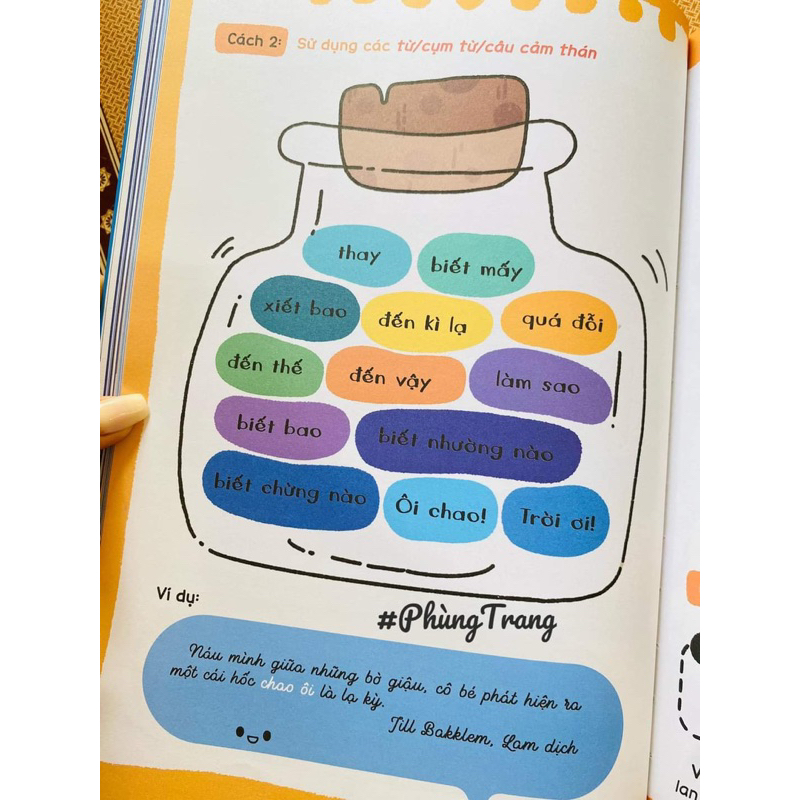 Cách 2: Sử dụng các từ/cụm từ/câu cảm thán
thay biết mấy
xiết bao đến kì lạ quá đỗi
đến thế đến vậy làm sao
biết bao biết nhường nào
biết chừng nào Ôi chao! Trời ơi!
Ví dụ:
#PhùngTrang
Náu mình giữa những bờ giậu, cô bé phát hiện ra
một cái hốc chao ôi là lạ kỳ.
Jill Bakklem, Lam dịch